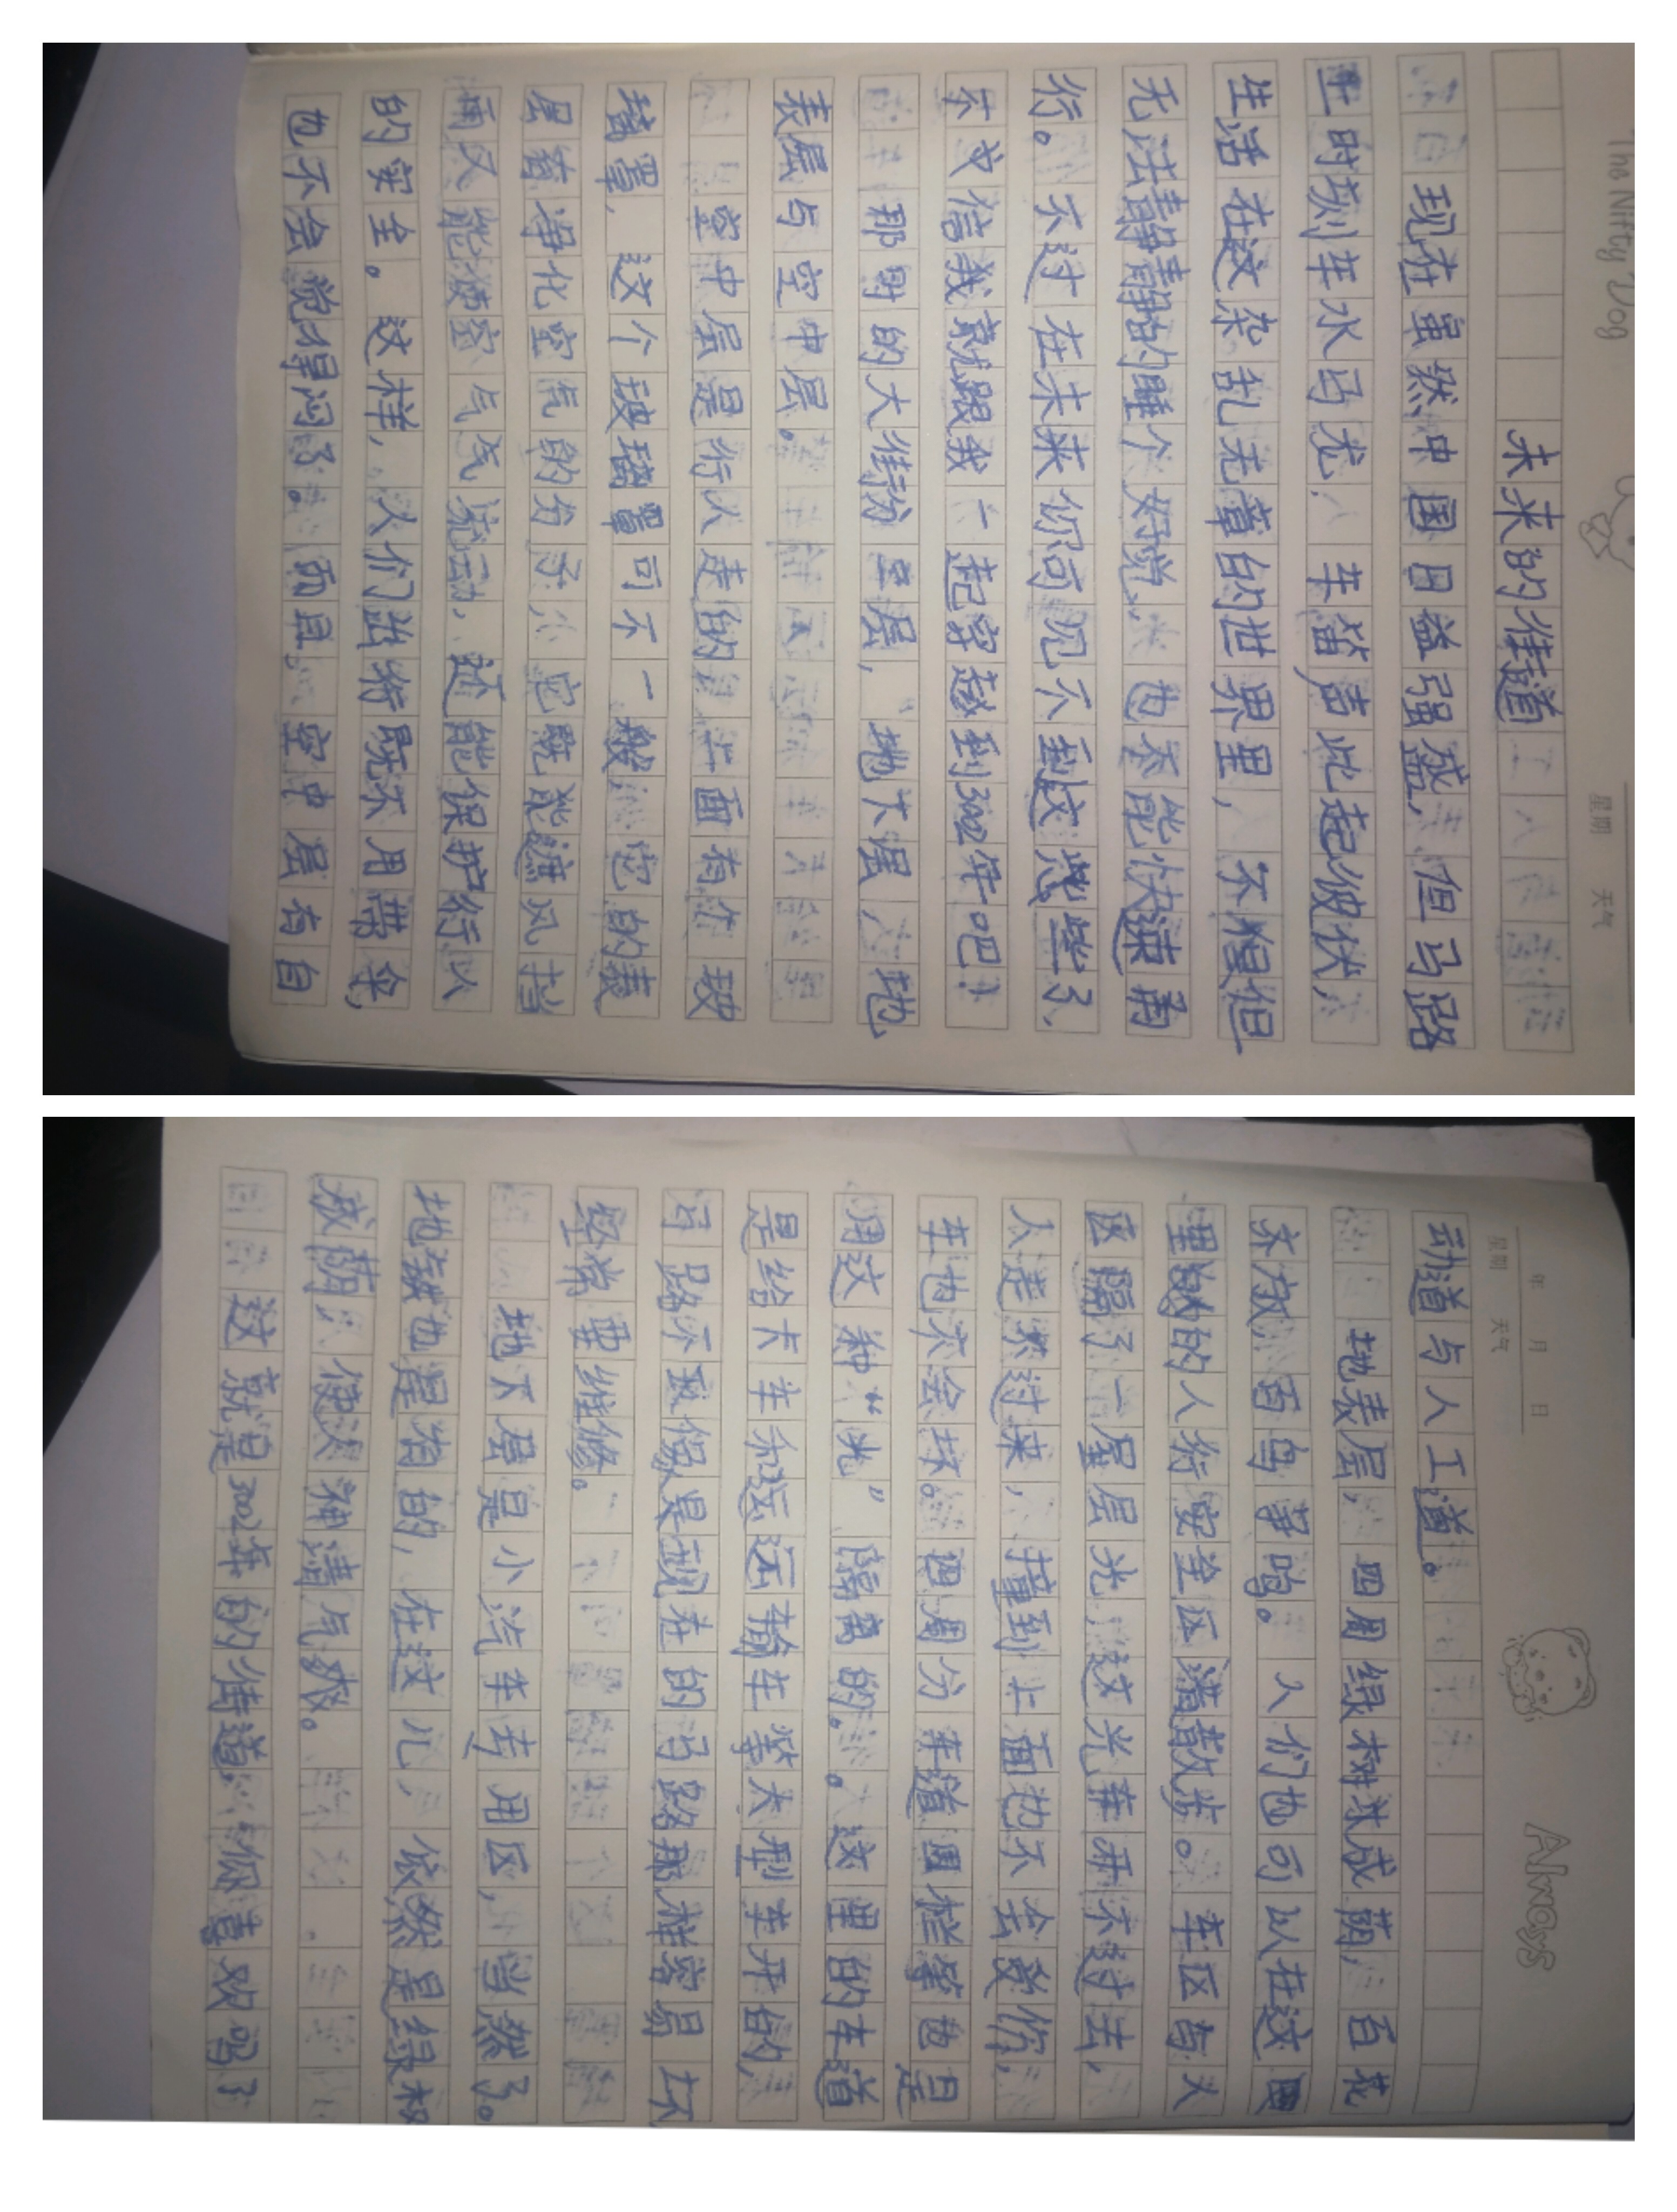 The Nifty Dog
星期 天气
未来的街道
现在虽然中国日益强盛,但马路
上时刻车水马龙,车笛声此起彼伏,
生活在这杂乱无章的世界里,不慢但
无法静静的睡个好觉,也不能快速通
行。不过在未来你可见不到这些了,
不或信我就跟我一起穿越到3002年吧!
那时的大街分 层,地下层 地
表层与空中层。
空中层是行人走的 上面有个玻
璃罩,这个玻璃罩可不一般 它的表
层有净化空气的分子,它既能遮风挡
雨又能使空气气流流动,还能保护行人
的安全。这样,人们出行既不用带伞,
也不会觉得闷了。而且 空中层有自
年 月 日
星期 天气
Always
动道与人工道。
地表层,四周绿树成荫,百花
齐放,百鸟争鸣。人们也可以在这里
里 的人行安全区 散步。车区与人
区隔了一层层光,这光车开不过去,
人走不过来,撞到上面也不会受伤,
车也不会坏。四周分车道围栏等也是
用这种“光”隔离的。这里的车道
是给卡车和 运输车等大型车开的,
马路不再像是现在的马路那样容易坏
经常要维修。
地下层是小汽车专用区,当然了。
地 也是有的,在这儿,依然是绿树
成荫 使人神清气爽。
这就是3002年的街道,你喜欢吗?